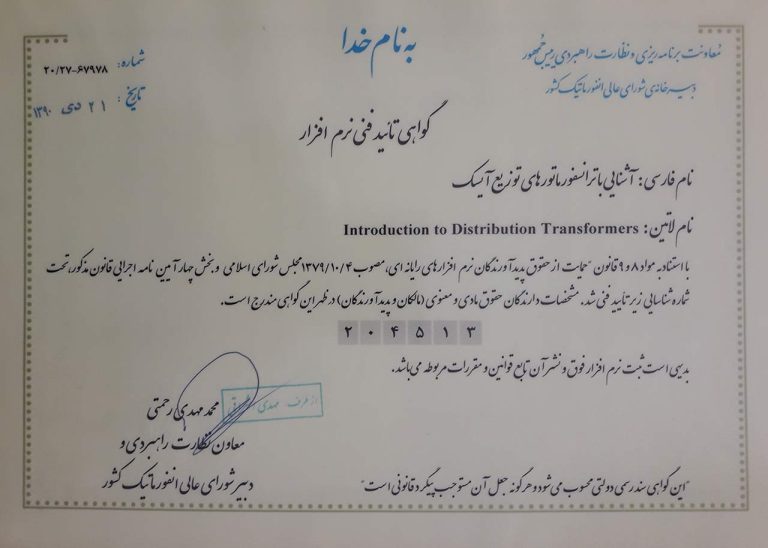 به نام خدا
معاونت برنامه ریزی و نظارت راهبردی رییس جمهور
دبیرخانه‌ی شورای عالی انفورماتیک کشور
شماره: ۲۰/۲۷-۶۷۹۷۸
تاریخ: ۲۱ دی ۱۳۹۰
گواهی تائید فنی نرم افزار
نام فارسی: آشنایی با ترانسفورماتورهای توزیع آیسک
نام لاتین: Introduction to Distribution Transformers
با استناد به مواد ۸ و ۹ قانون "حمایت از حقوق پدیدآورندگان نرم افزارهای رایانه ای، مصوب ۱۳۷۹/۱۰/۴ مجلس شورای اسلامی و بخش چهار آیین نامه اجرایی قانون مذکور، تحت
شماره شناسایی زیر تأیید فنی شد. مشخصات دارندگان حقوق مادی و معنوی (مالکان و پدیدآورندگان) در ظهر این گواهی مندرج است.
۲۰۴۵۱۳
بدیهی است ثبت نرم افزار فوق و نشر آن تابع قوانین و مقررات مربوطه می‌باشد.
از طرف مهدی
محمد مهدی رحمتی
معاون نظارت راهبردی و
دبیر شورای عالی انفورماتیک کشور
"این گواهی سند رسمی دولتی محسوب می شود و هرگونه جعل آن مستوجب پیگرد قانونی است"